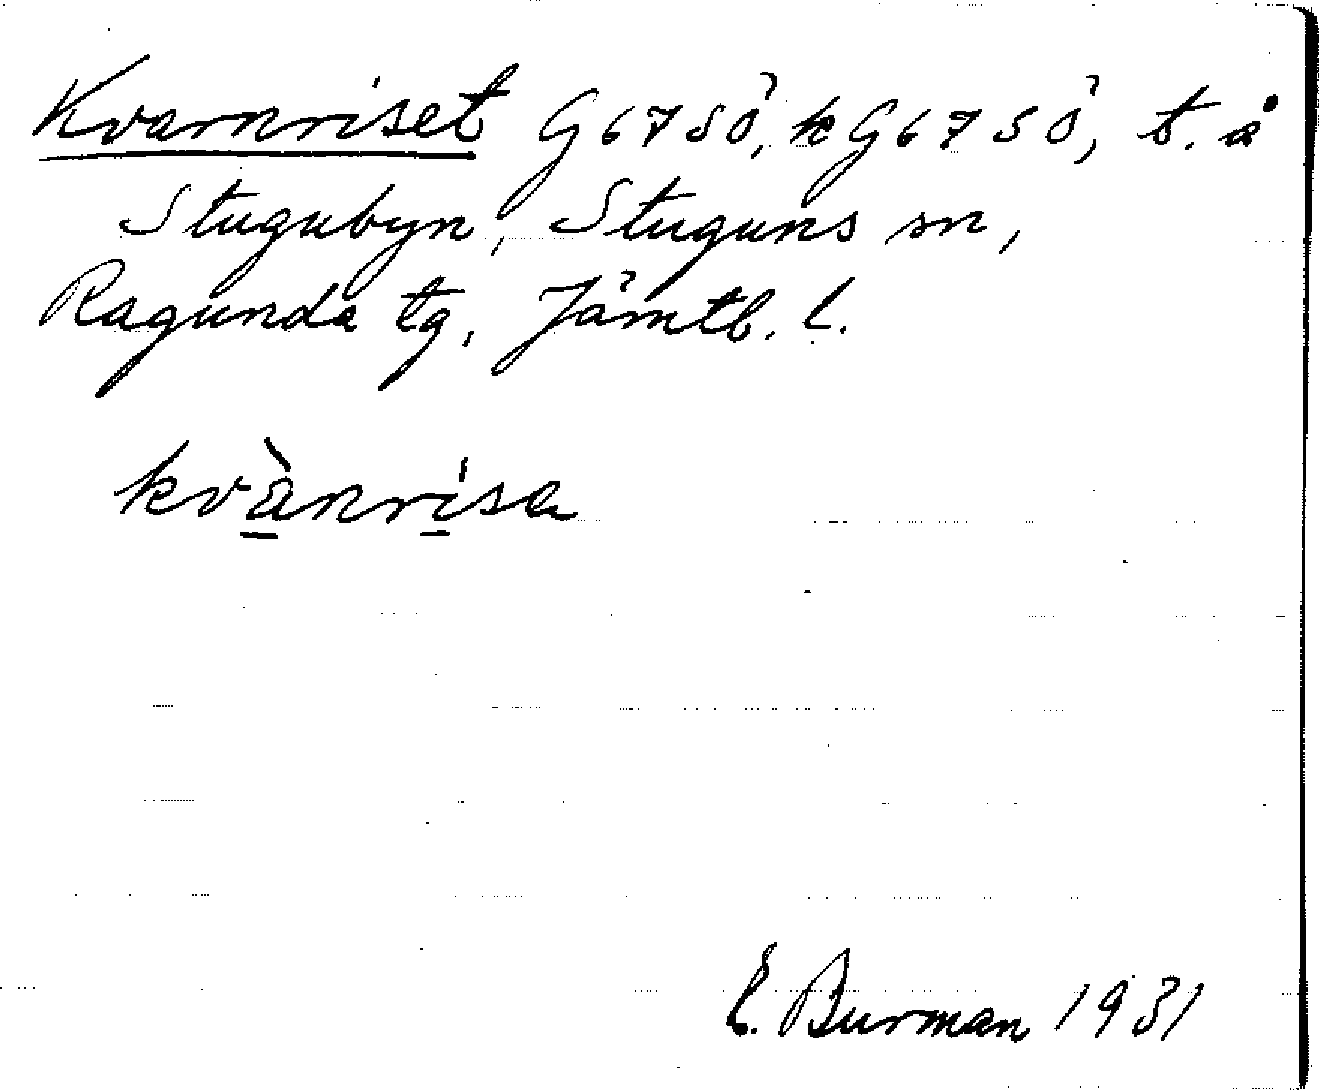 Kvarnriset G67SÖ, kG67SÖ, t. å
Stugubyn, Stuguns sn,
Ragunda tg, Jämtl. l.
kvànrisa
E. Burman 1931